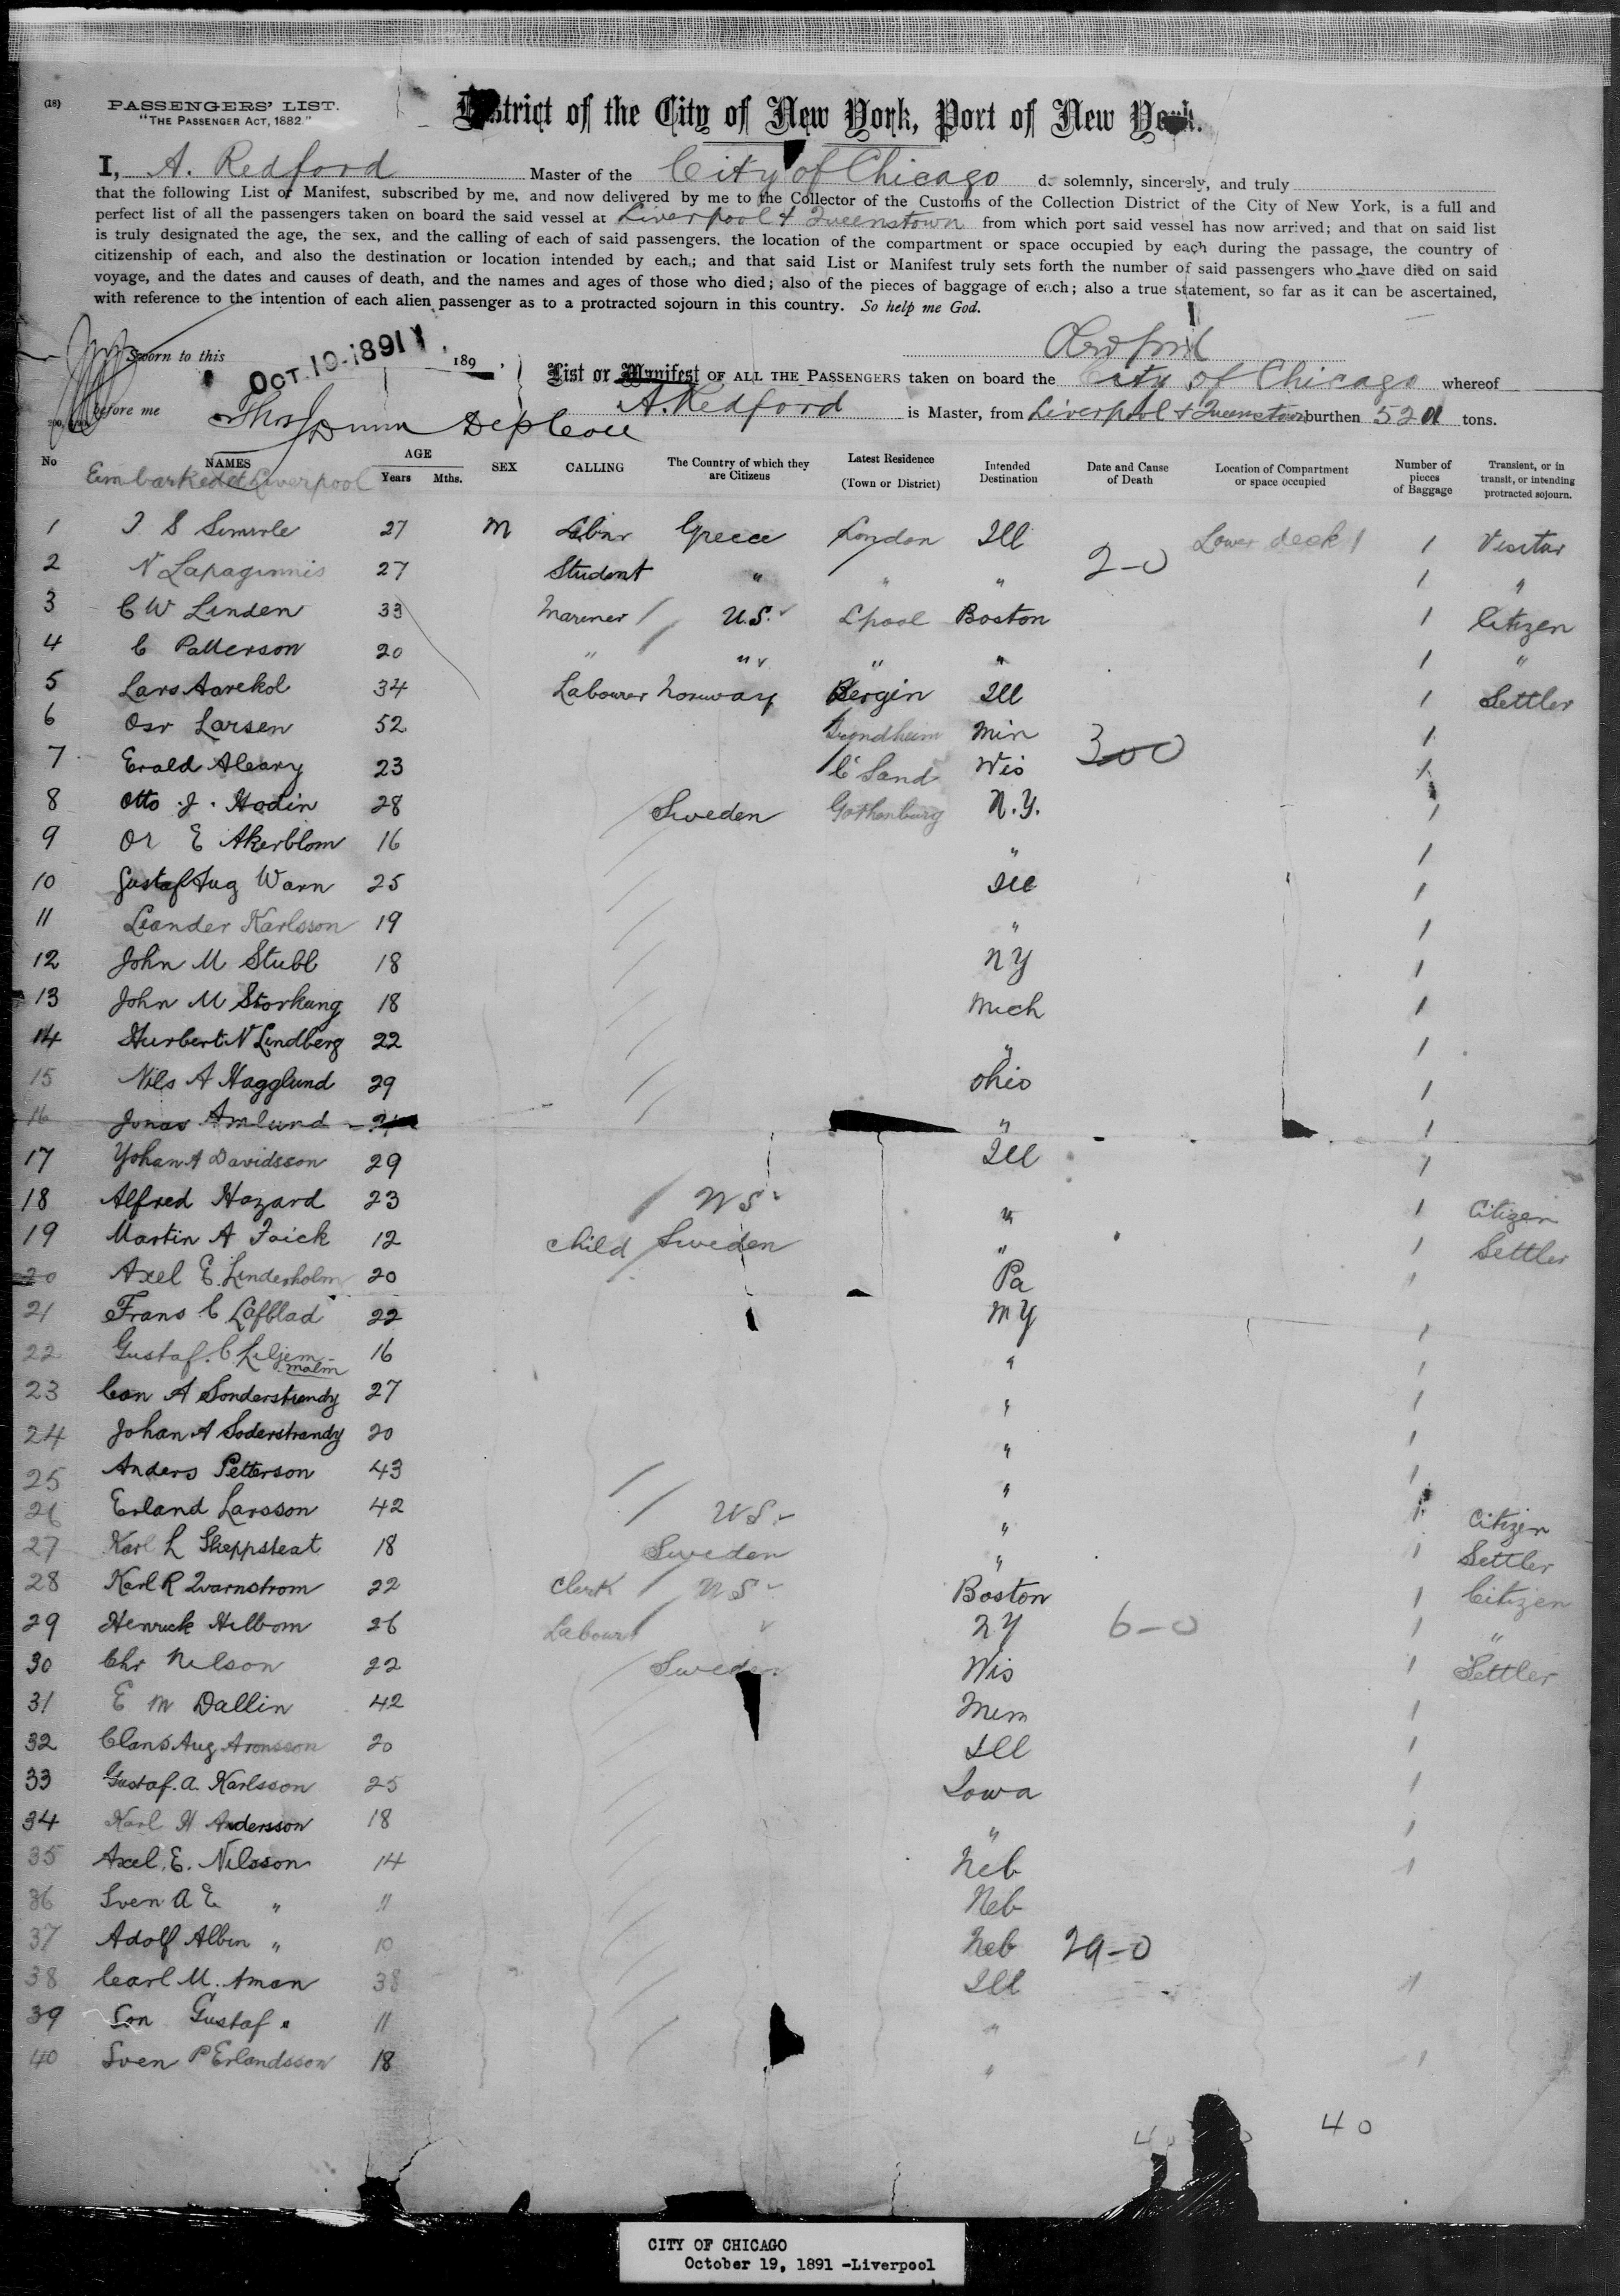 (18)
PASSENGERS' LIST.
"THE PASSENGER ACT, 1882."
District of the City of New York, Port of New York.
I, A. Redford Master of the City of Chicago do solemnly, sincerely, and truly
that the following List or Manifest, subscribed by me, and now delivered by me to the Collector of the Customs of the Collection District of the City of New York, is a full and
perfect list of all the passengers taken on board the said vessel at Liverpool & Queenstown from which port said vessel has now arrived; and that on said list
is truly designated the age, the sex, and the calling of each of said passengers, the location of the compartment or space occupied by each during the passage, the country of
citizenship of each, and also the destination or location intended by each; and that said List or Manifest truly sets forth the number of said passengers who have died on said
voyage, and the dates and causes of death, and the names and ages of those who died; also of the pieces of baggage of each; also a true statement, so far as it can be ascertained,
with reference to the intention of each alien passenger as to a protracted sojourn in this country. So help me God.
Redford
Sworn to this OCT. 19. 1891 189 ,
List or Manifest OF ALL THE PASSENGERS taken on board the City of Chicago whereof
before me A. Redford is Master, from Liverpool & Queenstown burthen 5201 tons.
No NAMES AGE Years Mths. SEX CALLING The Country of which they are Citizens Latest Residence (Town or District) Intended Destination Date and Cause of Death Location of Compartment or space occupied Number of pieces of Baggage Transient, or in transit, or intending protracted sojourn.
Embarked at Liverpool
1 27 M Labour Greece London Ill Lower deck 1 1 Visitor
2 N 27 Student " " " 2-0 1 "
3 C W Linden 33 Mariner U.S. Lpool Boston 1 Citizen
4 C Patterson 20 " " " " 1 "
5 Lars Aarekol 34 Labourer Norway Bergin Ill 1 Settler
6 Larsen 52 Trondheim Min 1
7 23 C Sand Wis 300 1
8 Otto J. Hodin 28 Sweden Gothenburg N.Y. 1
9 E Akerblom 16 " 1
10 Gustaf Aug Warn 25 Ill 1
11 Leander Karlsson 19 " 1
12 John M Stubb 18 NY 1
13 John M Storkung 18 Mich 1
14 Hurbert N Lindberg 22 " 1
15 Nils A Hagglund 29 Ohio 1
16 Jonas Amlund 21 " 1
17 Yohan A Davidsson 29 Ill 1
18 Alfred Hazard 23 US " 1 Citizen
19 Martin A Faick 12 Child Sweden " 1 Settler
20 Axel E. Linderholm 20 Pa 1
21 Frans C Lofblad 22 NY 1
22 Gustaf. C Liljem-malm 16 " 1
23 A Sonderstrandy 27 " 1
24 Johan A Soderstrandy 20 " 1
25 Anders Petterson 43 " 1
26 Erland Larsson 42 US " 1 Citizen
27 Karl L Sheppsteat 18 Sweden " 1 Settler
28 Karl R Qvarnstrom 22 Clerk US Boston 1 Citizen
29 Henrick Hilbom 26 Labourer NY 6-0 1 "
30 Chr Nelson 22 Sweden Wis 1 Settler
31 E M Dallin 42 Minn 1
32 Clans Aug Aronsson 20 Ill 1
33 Gustaf. A. Karlsson 25 Iowa 1
34 Karl H Andersson 18 " 1
35 Axel. E. Nilsson 14 Neb 1
36 Sven A E " 11 Neb
37 Adolf Albin " 10 Neb 29-0
38 Carl M. Aman 38 Ill 1
39 Son Gustaf " 11 "
40 Sven P Erlandsson 18 " 1
40 40
CITY OF CHICAGO
October 19, 1891 -Liverpool